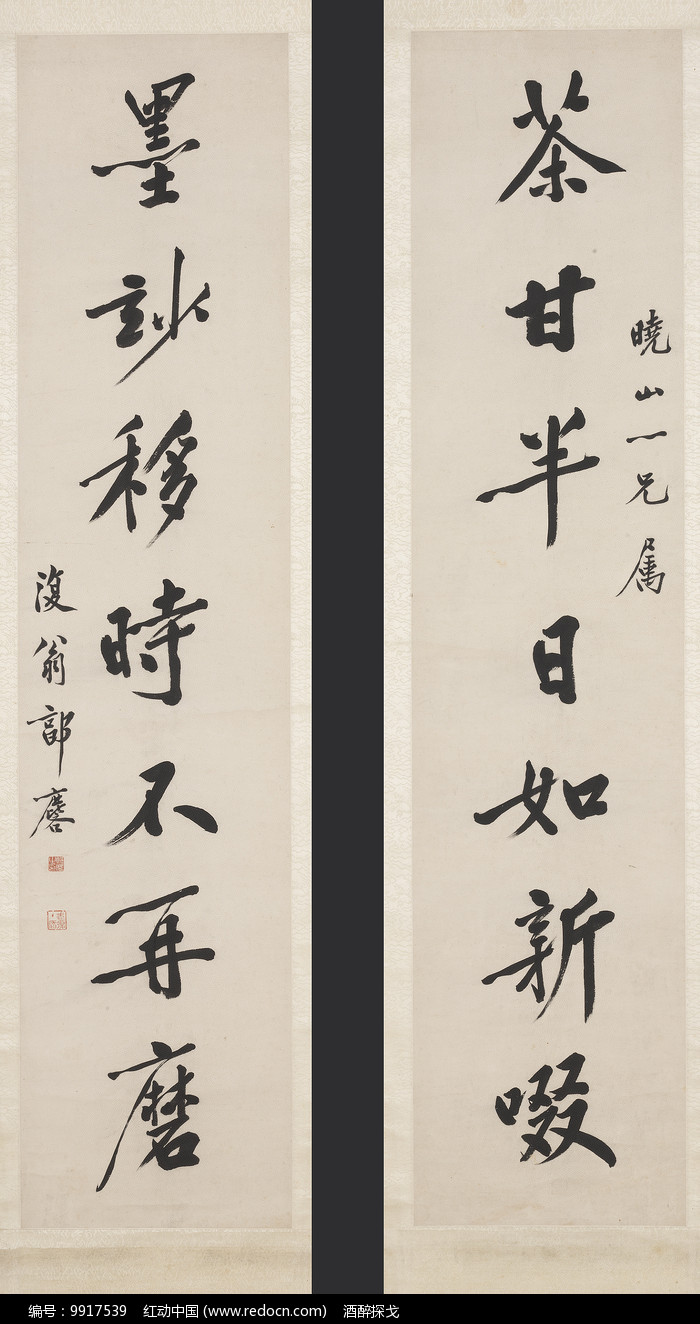 茶甘半日如新啜
曉山一兄属
墨玅移時不再磨
復翁郭麐
编号：9917539 红动中国 (www.redocn.com) 酒醉探戈